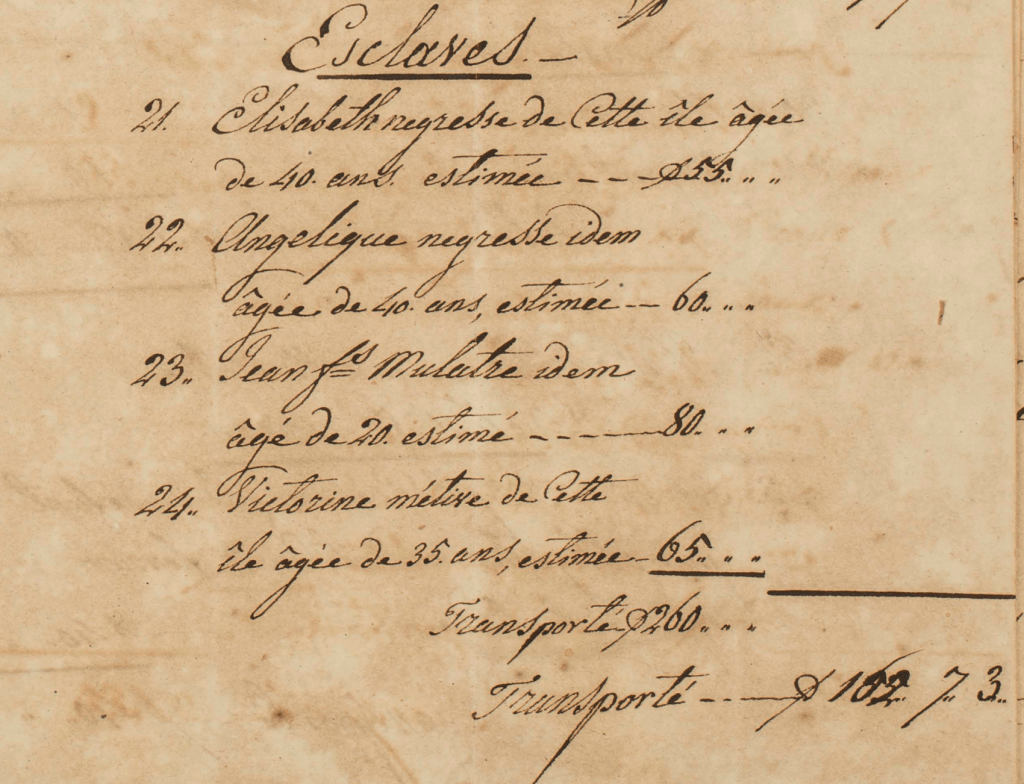 Esclaves. –
21. Elisabeth negresse de Cette île âgée
de 40. ans. estimée - - - $55. " "
22. Angelique negresse idem
âgée de 40. ans, estimée — 60. " "
23. Jean fs Mulatre idem
âgé de 20. estimé - - - - - 80. " "
24. Victorine métive de Cette
île âgée de 35. ans, estimée – 65. " "
Transporté $260. " "
Transporté - - - - $ 7. 3.